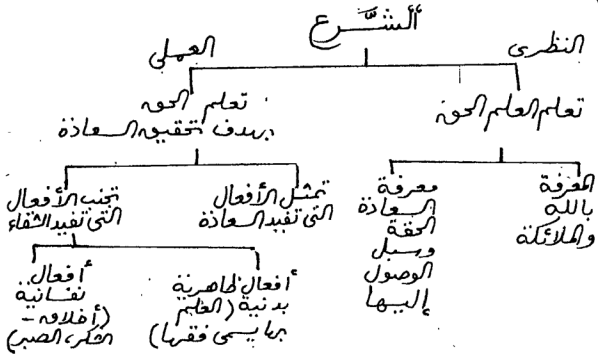 ألشَّرع
النظرى
العملى
تعلم العلم الحق
تعلم الحق
بهدف تحقيق السعاذة
المعرفة
بالله
والملائكة
معرفة
السعاذة
الحقة
وسبل
الوصول
إليها
تمثل الأفعال
التى تفيد السعاذة
تجنب الأفعال
التى تفيد الشقاء
أفعال ظاهرية
بدنية (العلم
بها يسمى فقها)
أفعال
نفسانية
(أخلاق -
الشكر، الصبر)